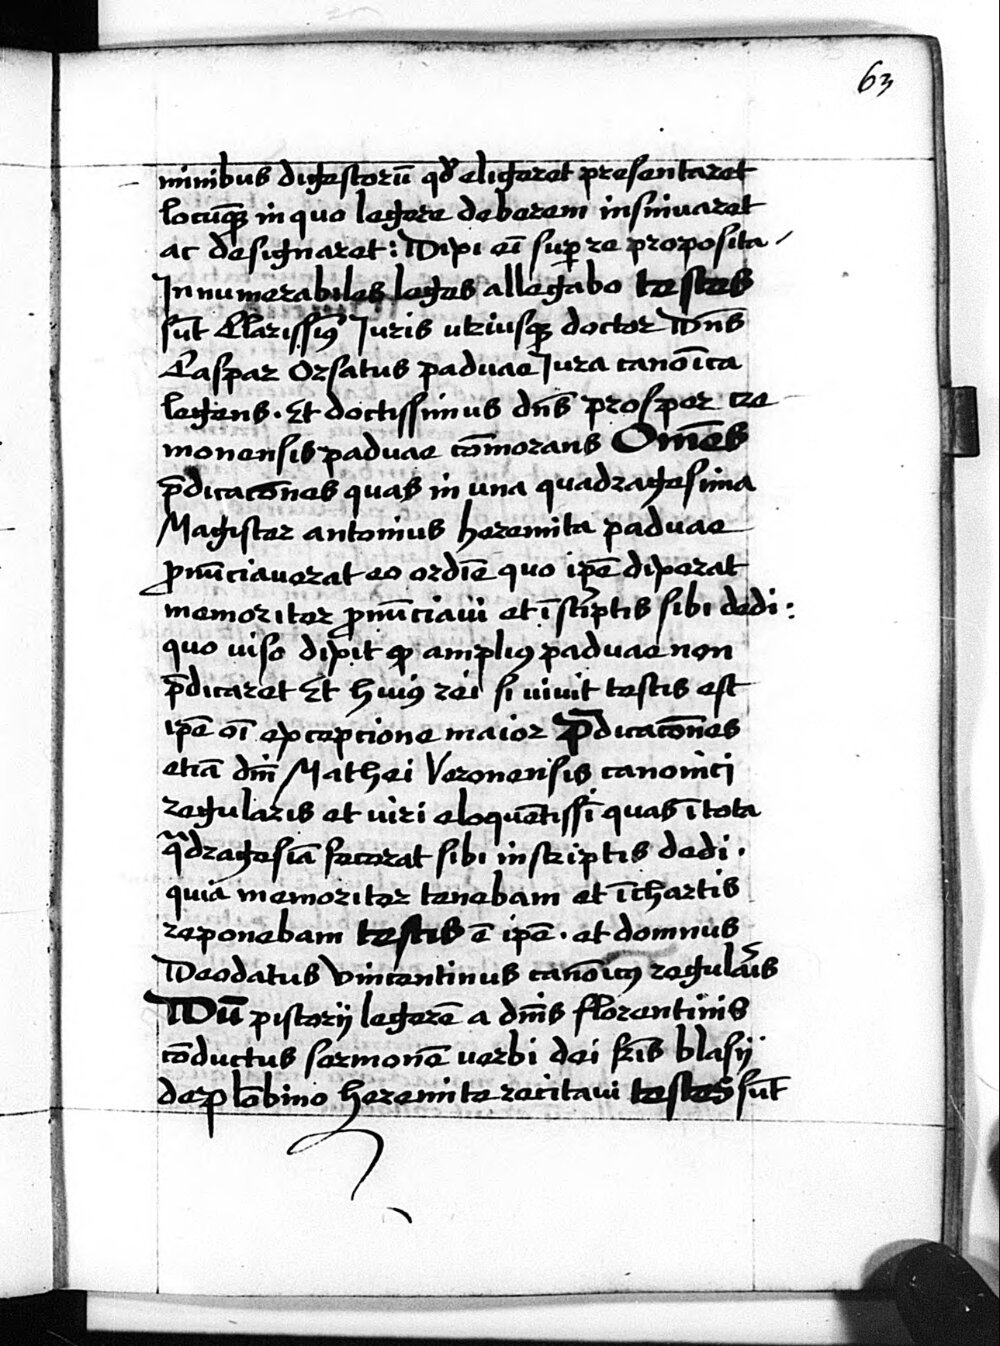 63
minibus digestorū qd̕ eligeret presentaret
locūqꝫ in quo legere deberem insinuaret
ac designaret: Dixi eī suꝑ re proposita
Innumerabiles leges allegabo testes
sūt Clarissimꝰ Juris utriusqꝫ doctor Dn̄s
Caspar Orsatus paduae Jura canoīca
legens. Et doctissimus dn̄s prosper cre
monensis paduae cōmorans Om̄es
p̄dicacōnes quas in una quadragesima
Magister antonius heremita paduae
ꝓnūciauerat eo ordīe quo ip̄e dixerat
memoriter ꝓnūciaui et ī scriptis sibi dedi:
quo uiso dixit ꝙ amplius paduae non
p̄dicaret Et huiꝰ rei si uiuit testis est
ip̄e oī excepcione maior P̄dicacōnes
etiā dn̄i Mathei Veronensis canonici
regularis et uiri eloquētissī quas ī tota
q̄dragesīa fecerat sibi inscriptis dedi.
quia memoriter tenebam et ī chartis
reponebam testis ē ip̄e. et domnus
Deodatus Vincentinus canoīcꝰ regularis
Dū pistorij legerē a dn̄is florentinis
cōductus sermonē uerbi dei fr̄is blasij
de plōbino heremite recitaui testes sūt